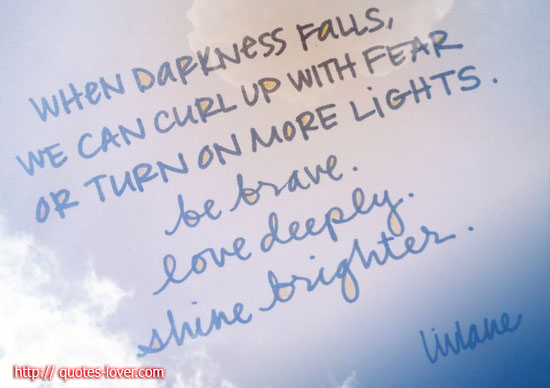 WHEN DARKNESS FALLS,
WE CAN CURL UP WITH FEAR
OR TURN ON MORE LIGHTS.
be brave.
love deeply.
shine brighter.
http:// quotes-lover.com